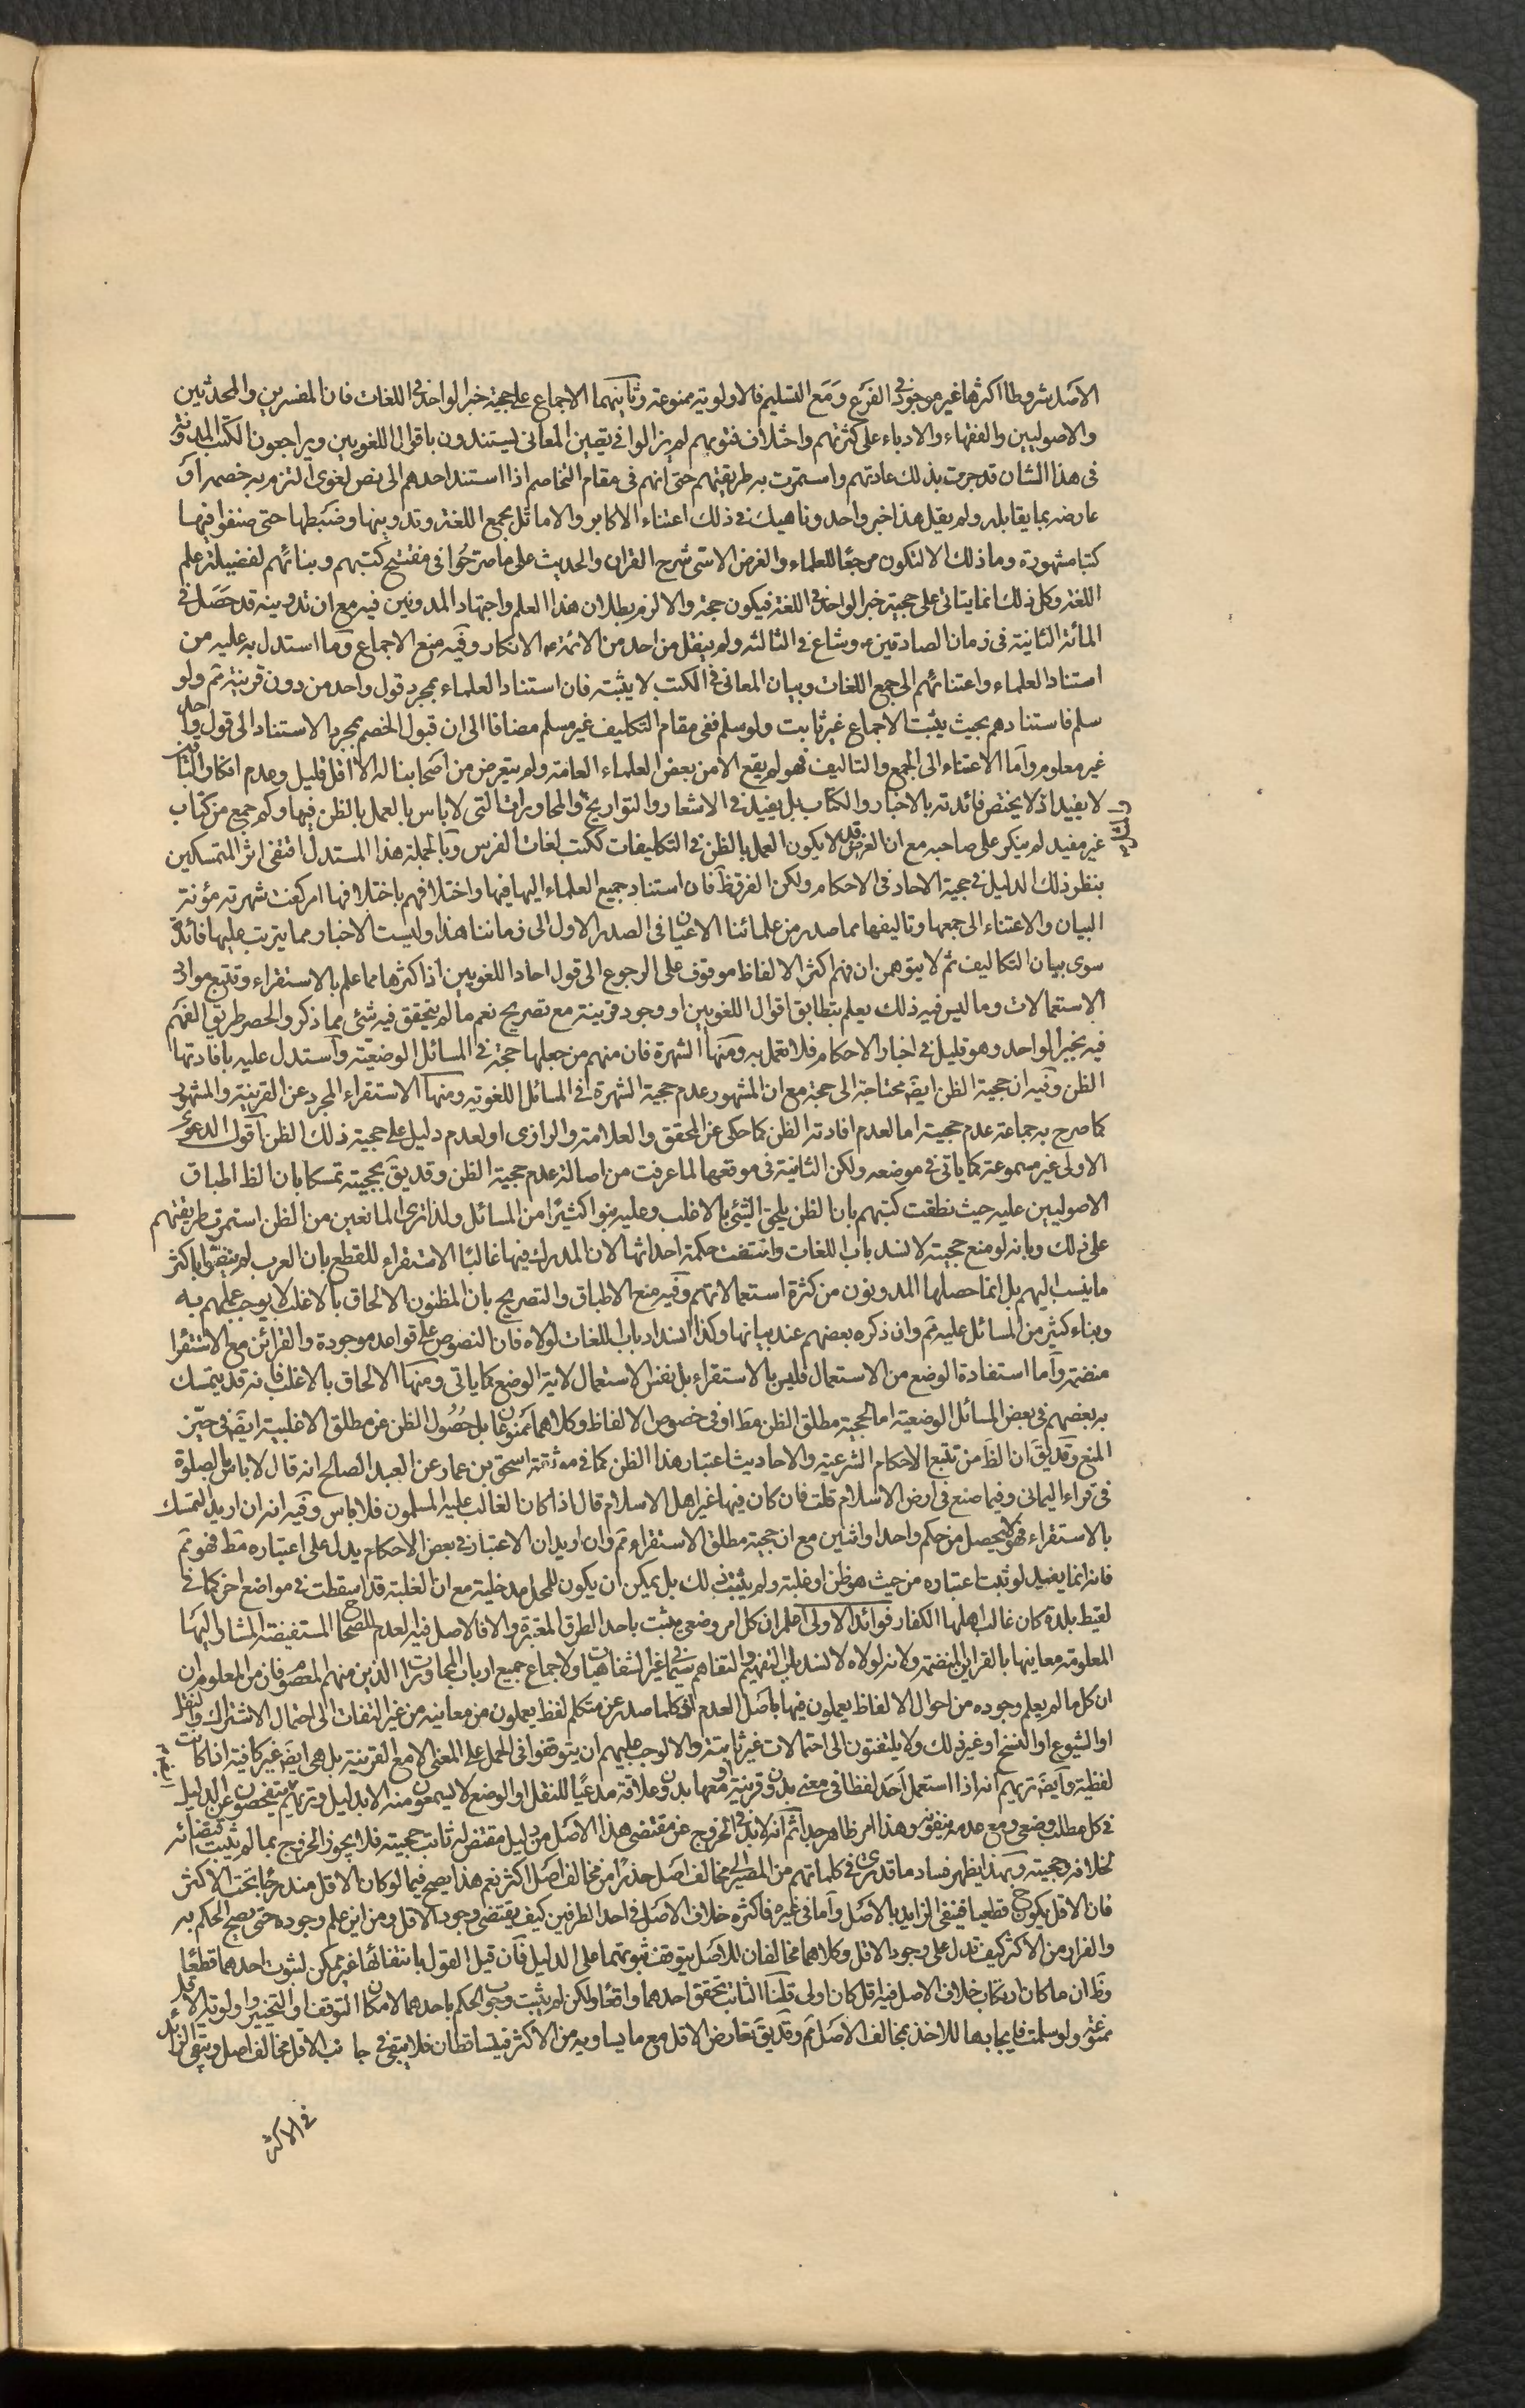 الاصل شروطا اكثرها غير موجود فى الفرع ومع التسليم فالاولوية ممنوعة وثانيهما الاجماع على حجية خبر الواحد فى اللغات فان المفسرين والمحدثين
والاصوليين والفقهاء والادباء على كثرتهم واختلاف فنونهم لم يزالوا فى تعيين المعانى يستندون باقوال اللغويين ويراجعون الكتب المدونة
فى هذا الشان قد جرت بذلك عادتهم واستمرت به طريقتهم حتى انهم فى مقام التخاصم اذا استند احدهم الى نص لغوى التزم به خصمه او
عارضه بما يقابله ولم يقل هذا خبر واحد وناهيك فى ذلك اعتناء الاكابر والاماثل بجمع اللغة وتدوينها وضبطها حتى صنفوا فيها
كتبا مشهورة وما ذلك الا لتكون مرجعا للعلماء والغرض الاسنى شرح القران والحديث على ما صرحوا فى مفتتح كتبهم وبنائهم لفضيلة علم
اللغة وكل ذلك انما يتاتى على حجية خبر الواحد فى اللغة فيكون حجة والا لزم بطلان هذا العلم واجتهاد المدونين فيه مع ان تدوينه قد حصل فى
المائة الثانية فى زمان الصادقين ع وشاع فى الثالثه ولم ينقل من احد من الائمة ع الانكار وفيه منع الاجماع وما استدل به عليه من
استناد العلماء واعتنائهم الى جمع اللغات وبيان المعانى فى الكتب لا يثبته فان استناد العلماء بمجرد قول واحد من دون قرينة ثم ولو
سلم فاستنادهم بحيث يثبت الاجماع غير ثابت ولو سلم ففى مقام التكليف غير مسلم مضافا الى ان قبول الخصم بمجرد الاستناد الى قول واحد
غير معلوم واما الاعتناء الى الجمع والتاليف فهو لم يقع الا من بعض العلماء العامة ولم يتعرض من اصحابنا له الا اقل قليل وعدم انكار الباقين
لا يفيد اذ لا يختص فائدته بالاخبار والكتاب بل يفيد فى الاشعار والتواريخ والمحاورات التى لا باس بالعمل بالظن فيها وكم جمع من كتاب
غير مفيد لم ينكر على صاحبه مع ان الغرض قد لا يكون العمل بالظن فى التكليفات ككتب لغات الفرس وبالجملة هذا المستدل اقتفى اثر المتمسكين
بنظر ذلك الدليل فى حجية الاحاد فى الاحكام ولكن الفرق ظ فان استناد جميع العلماء اليها فيها واختلافهم باختلافها امر كفت شهرته مؤنة
البيان والاعتناء الى جمعها وتاليفها مما صدر من علمائنا الاعيان فى الصدر الاول الى زماننا هذا وليست الاخبار مما يترتب عليها فائدة
سوى بيان التكاليف ثم لا يتوهمن ان فهم اكثر الالفاظ موقوف على الرجوع الى قول احاد اللغويين اذ اكثرها مما علم بالاستقراء وتتبع موارد
الاستعمالات وما ليس فيه ذلك يعلم بتطابق اقوال اللغويين او وجود قرينة مع تصريح نعم ما لم يتحقق فيه شئ مما ذكر وانحصر طريق الفهم
فيه بخبر الواحد وهو قليل فى اخبار الاحكام فلا نعمل به ومنها الشهرة فان منهم من جعلها حجة فى المسائل الوضعية واستدل عليه بافادتها
الظن وفيه ان حجية الظن ايضا محتاجة الى حجة مع ان المشهور عدم حجية الشهرة فى المسائل اللغوية ومنها الاستقراء المجرد عن القرينة والمشهور
كما صرح به جماعة عدم حجيته اما لعدم افادته الظن كما حكى عن المحقق والعلامة والرازى او لعدم دليل على حجية ذلك الظن اقول الدعوى
الاولى غير مسموعة كما ياتى فى موضعه ولكن الثانية فى موقعها لما عرفت من اصالة عدم حجية الظن وقد يق بحجيته تمسكا بان الظ اطباق
الاصوليين عليه حيث نطقت كتبهم بان الظن يلحق الشئ بالاغلب وعليه بنوا كثيرا من المسائل ولذا ترى المانعين من الظن استمرت طريقتهم
على ذلك وبانه لو منع حجيته لانسد باب اللغات وانتفت حكمة احداثها لان المدرك فيها غالبا الاستقراء للقطع بان العرب لم ينقلوا باكثر
ما ينسب اليهم بل انما حصلها المدونون من كثرة استعمالاتهم وفيه منع الاطباق والتصريح بان المظنون الالحاق بالاغلب لا يوجب عملهم به
وبناء كثير من المسائل عليه ثم وان ذكره بعضهم عند بيانها وكذا انسداد باب اللغات لولاه فان النصوص على قواعد موجودة والقرائن مع الاستقراء
منضمة واما استفادة الوضع من الاستعمال فليس بالاستقراء بل بنفس الاستعمال لاية الوضع كما ياتى ومنها الالحاق بالاغلب فانه قد يتمسك
به بعضهم فى بعض المسائل الوضعية اما لحجية مطلق الظن مط او فى خصوص الالفاظ وكلاهما ممنوعان بل حصول الظن عن مطلق الاغلبية ايضا فى حيّز
المنع وقد يق ان الظ من تتبع الاحكام الشرعية والاحاديث اعتبار هذا الظن كما فى موثقة اسحق بن عمار عن العبد الصالح انه قال لا باس بالصلوة
فى فراء اليمانى وفيما صنع فى ارض الاسلام قلت فان كان فيها غير اهل الاسلام قال اذا كان الغالب عليه المسلمون فلا باس وفيه انه ان اريد التمسك
بالاستقراء فهو لا يحصل من حكم واحد او اثنين مع ان حجية مطلق الاستقراء ثم وان اريد ان الاعتبار فى بعض الاحكام يدل على اعتباره مط فهو ثم
فانه انما يفيد لو ثبت اعتباره من حيث هو ظن او غلبة ولم يثبت ذلك بل يمكن ان يكون للمحل مدخلية مع ان الغلبة قد اسقطت فى مواضع اخر كما فى
لقيط بلدة كان غالب اهلها الكفار فوائد الاولى اعلم ان كل امر وضعى يثبت باحد الطرق المعتبرة والا فالاصل فيه العدم للصحاح المستفيضة المشار اليها
المعلومة معانيها بالقراين المنضمة ولانه لولاه لانسد باب التفهيم والتفاهم سيما فى غير الشفاهيات ولاجماع جميع ارباب المحاورات الذين منهم المعصوم فان من المعلوم ان
ان كل ما لم يعلم وجوده من احوال الالفاظ يعملون فيها باصل العدم الا ترى كلما صدر عن متكلم لفظ يعملون من معانيه من غير التفات الى احتمال الاشتراك والنقل
او الشيوع او النسخ او غير ذلك ولا يلتفتون الى احتمالات غير ثابتة والا لوجب عليهم ان يتوقفوا فى الحمل على المعنى الا مع القرينة بل هى ايضا غير كافية اذا كانت
لفظية وايضا تريهم انه اذا استعمل احد لفظا فى معنى بدون قرينة او معها بدون علاقة مدعيا للنقل او الوضع لا يسمعون منه الا بدليل وتريهم يتفحصون عن الدليل
فى كل مطلب وضعى ومع عدمه ينفونه وهذا امر ظاهر جدا ثم انه لا بد فى الخروج عن مقتضى هذا الاصل من دليل مقتض له ثابت حجيته فلا يجوز الخروج بما لم يثبت اقتضائه
لخلافه وحجيته وبهذا يظهر فساد ما قد يرى فى كلماتهم من المصير الى مخالف اصل حذرا من مخالف اصل اكثر نعم هذا يصح فيما لو كان الاقل مندرجا تحت الاكثر
فان الاقل يكون ح قطعيا فينفى الزايد بالاصل واما فى غيره فاكثره خلاف الاصل فى احد الطرفين كيف يقتضى وجود الاقل ومن اين علم وجوده حتى يصح الحكم به
والفرار من الاكثر كيف تدل على وجود الاقل وكلاهما مخالفان للاصل يتوقف ثبوتهما على الدليل فان قيل القول بانتفائها غير ممكن لثبوت احدهما قطعا
وظ ان ما كان ارتكاب خلاف الاصل فيه اقل كان اولى قلنا الثابت تحقق احدهما واقعا ولكن لم يثبت وجوب الحكم باحدهما لامكان التوقف او التخيير واولوية الاقل
ممنوعة ولو سلمت فايجابها للاخذ بمخالف الاصل ثم وقد يق تعارض الاقل مع ما يساويه من الاكثر فيتساقطان فلا يبقى فى جانب الاقل مخالف اصل ويبقى الزائد
فى الاكثر